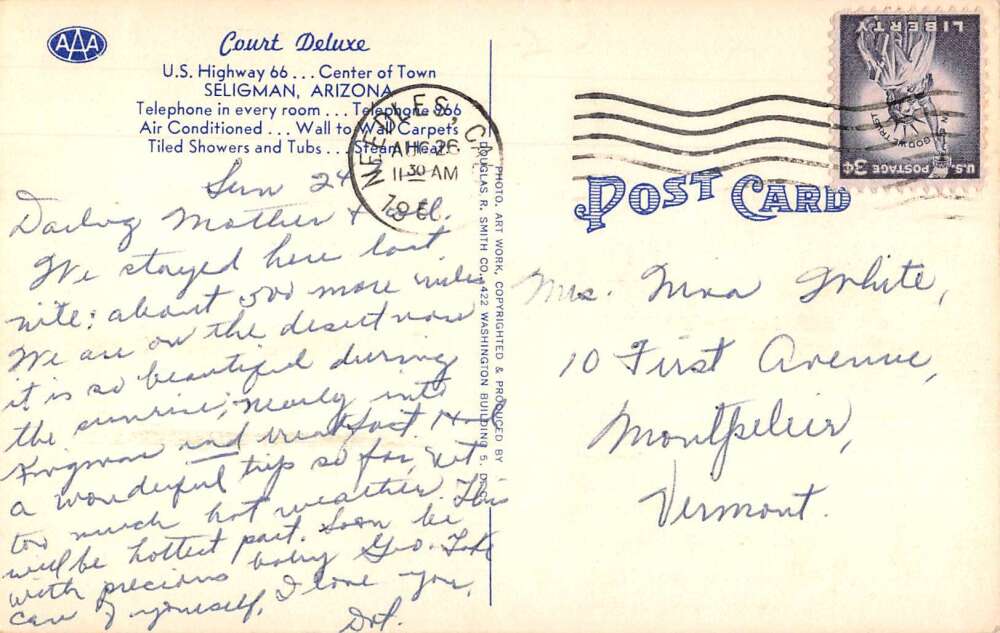 AAA
Court Deluxe
U.S. Highway 66 . . . Center of Town
SELIGMAN, ARIZONA
Telephone in every room . . . Telephone 266
Air Conditioned . . . Wall to Wall Carpets
Tiled Showers and Tubs . . . Steam Heat
Sun 24
Darling Mother + all.
We stayed here last
nite; about 500 more miles
We are on the desert now
it is so beautiful during
the sunrise; nearly into
Kingman and breakfast. Had
a wonderful trip so far, not
too much hot weather. This
will be hottest part. Soon be
with precious baby Geo. Take
care of yourself, I love you,
Dot.
NEEDLES, CA
AUG 26
11 30 AM
PHOTO, ART WORK, COPYRIGHTED & PRODUCED BY
DOUGLAS R. SMITH CO., 422 WASHINGTON BUILDING
POST CARD
LIBERTY
IN GOD WE TRUST
U.S. POSTAGE 3¢
Mrs. Nina White,
10 First Avenue,
Montpelier,
Vermont.